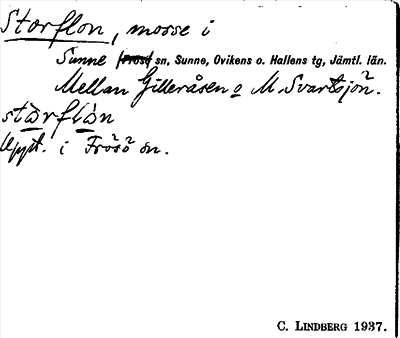 Storflon, mosse i
Sunne (Frösö) sn, Sunne, Ovikens o. Hallens tg, Jämtl. län.
Mellan Gilleråsen o M. Svartsjön.
stòrflån
Uppt. i Frösö sn.
C. LINDBERG 1937.